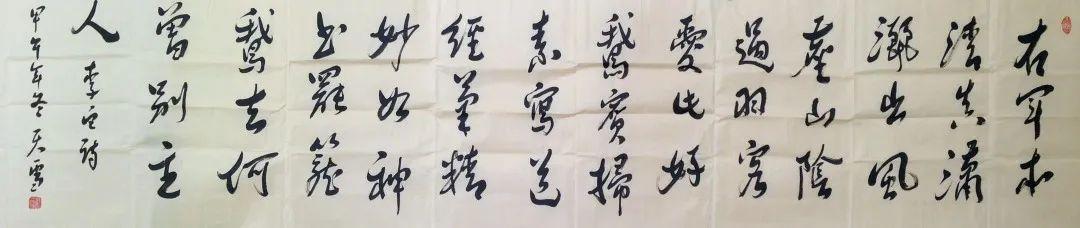 右軍本
清真瀟
灑出風
塵山陰
過羽客
愛此好
鵞賓掃
素寫道
經筆精
妙如神
書罷籠
鵞去何
曾別主
人 李白詩
甲午年冬